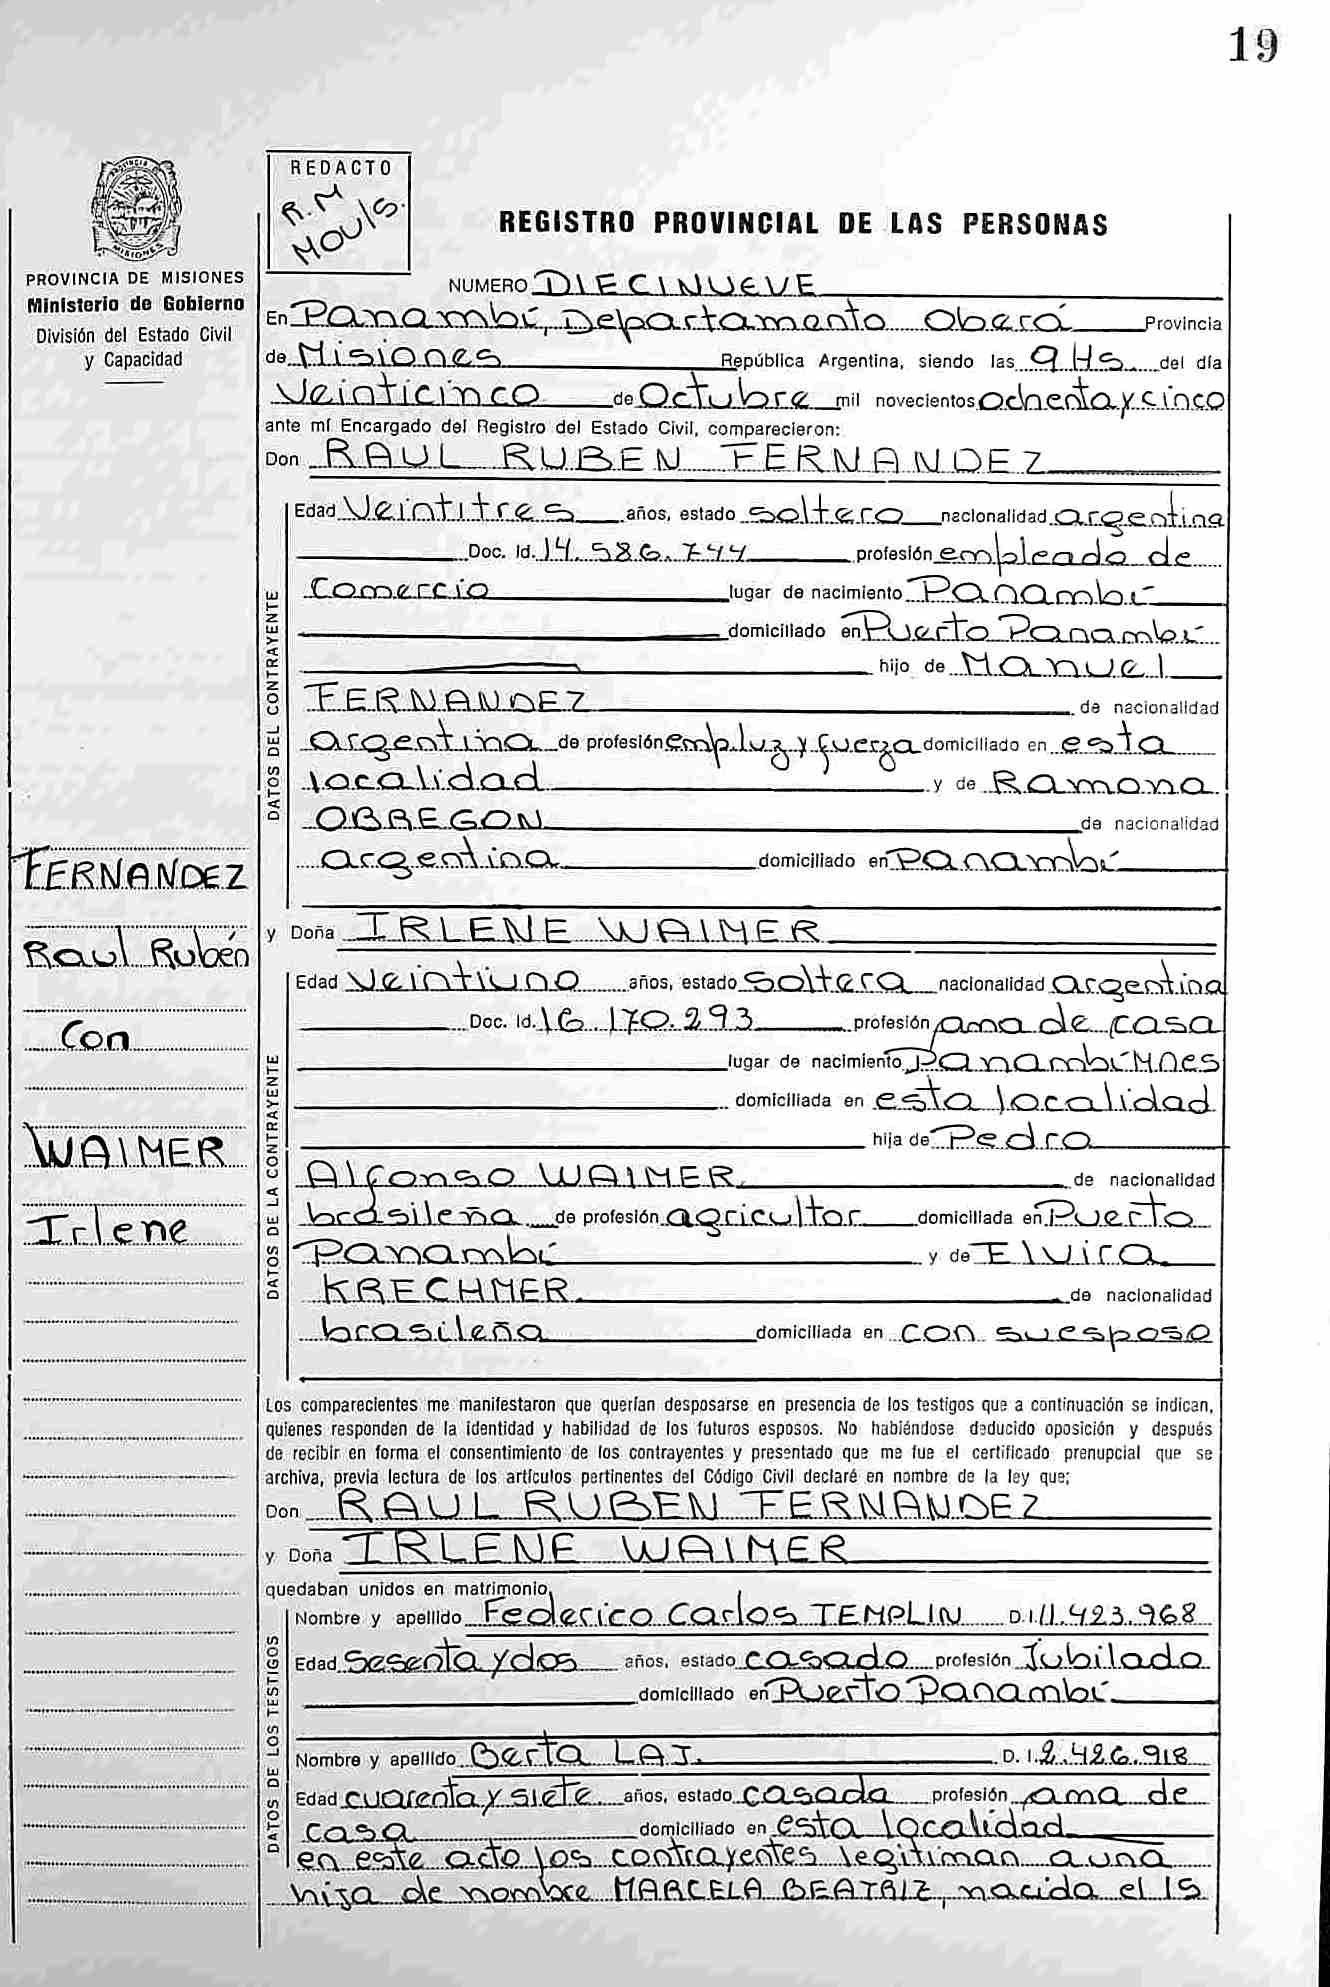 19
REDACTO
R.M
MOU/S.
PROVINCIA DE MISIONES
Ministerio de Gobierno
División del Estado Civil
y Capacidad
REGISTRO PROVINCIAL DE LAS PERSONAS
NUMERO DIECINUEVE
En Panambí, Departamento Oberá Provincia
de Misiones República Argentina, siendo las 9 Hs. del día
Veinticinco de Octubre mil novecientos ochenta y cinco
ante mí Encargado del Registro del Estado Civil, comparecieron:
Don RAUL RUBEN FERNANDEZ
DATOS DEL CONTRAYENTE
Edad Veintitres años, estado soltero nacionalidad argentina
Doc. Id. 14.586.744 profesión empleado de
Comercio lugar de nacimiento Panambí
domiciliado en Puerto Panambí
hijo de Manuel
FERNANDEZ de nacionalidad
argentina de profesión emp luz y fuerza domiciliado en esta
localidad y de Ramona
OBREGON de nacionalidad
argentina domiciliado en Panambí
FERNANDEZ
Raul Rubén
Con
WAIMER
Irlene
y Doña IRLENE WAIMER
DATOS DE LA CONTRAYENTE
Edad Veintiuno años, estado Soltera nacionalidad argentina
Doc. Id. 16.170.293 profesión ama de casa
lugar de nacimiento Panambí Mnes
domiciliada en esta localidad
hija de Pedro
Alfonso WAIMER de nacionalidad
brasileña de profesión agricultor domiciliada en Puerto
Panambí y de Elvira
KRECHMER de nacionalidad
brasileña domiciliada en con su esposo
Los comparecientes me manifestaron que querían desposarse en presencia de los testigos que a continuación se indican,
quienes responden de la identidad y habilidad de los futuros esposos. No habiéndose deducido oposición y después
de recibir en forma el consentimiento de los contrayentes y presentado que me fue el certificado prenupcial que se
archiva, previa lectura de los artículos pertinentes del Código Civil declaré en nombre de la ley que;
Don RAUL RUBEN FERNANDEZ
y Doña IRLENE WAIMER
quedaban unidos en matrimonio
DATOS DE LOS TESTIGOS
Nombre y apellido Federico Carlos TEMPLIN D.I. 11.423.968
Edad Sesenta y dos años, estado casado profesión Jubilado
domiciliado en Puerto Panambí
Nombre y apellido Berta LAJ. D. I. 2.426.918
Edad cuarenta y siete años, estado casada profesión ama de
casa domiciliado en esta localidad
en este acto los contrayentes legitiman a una
hija de nombre MARCELA BEATRIZ, nacida el 15